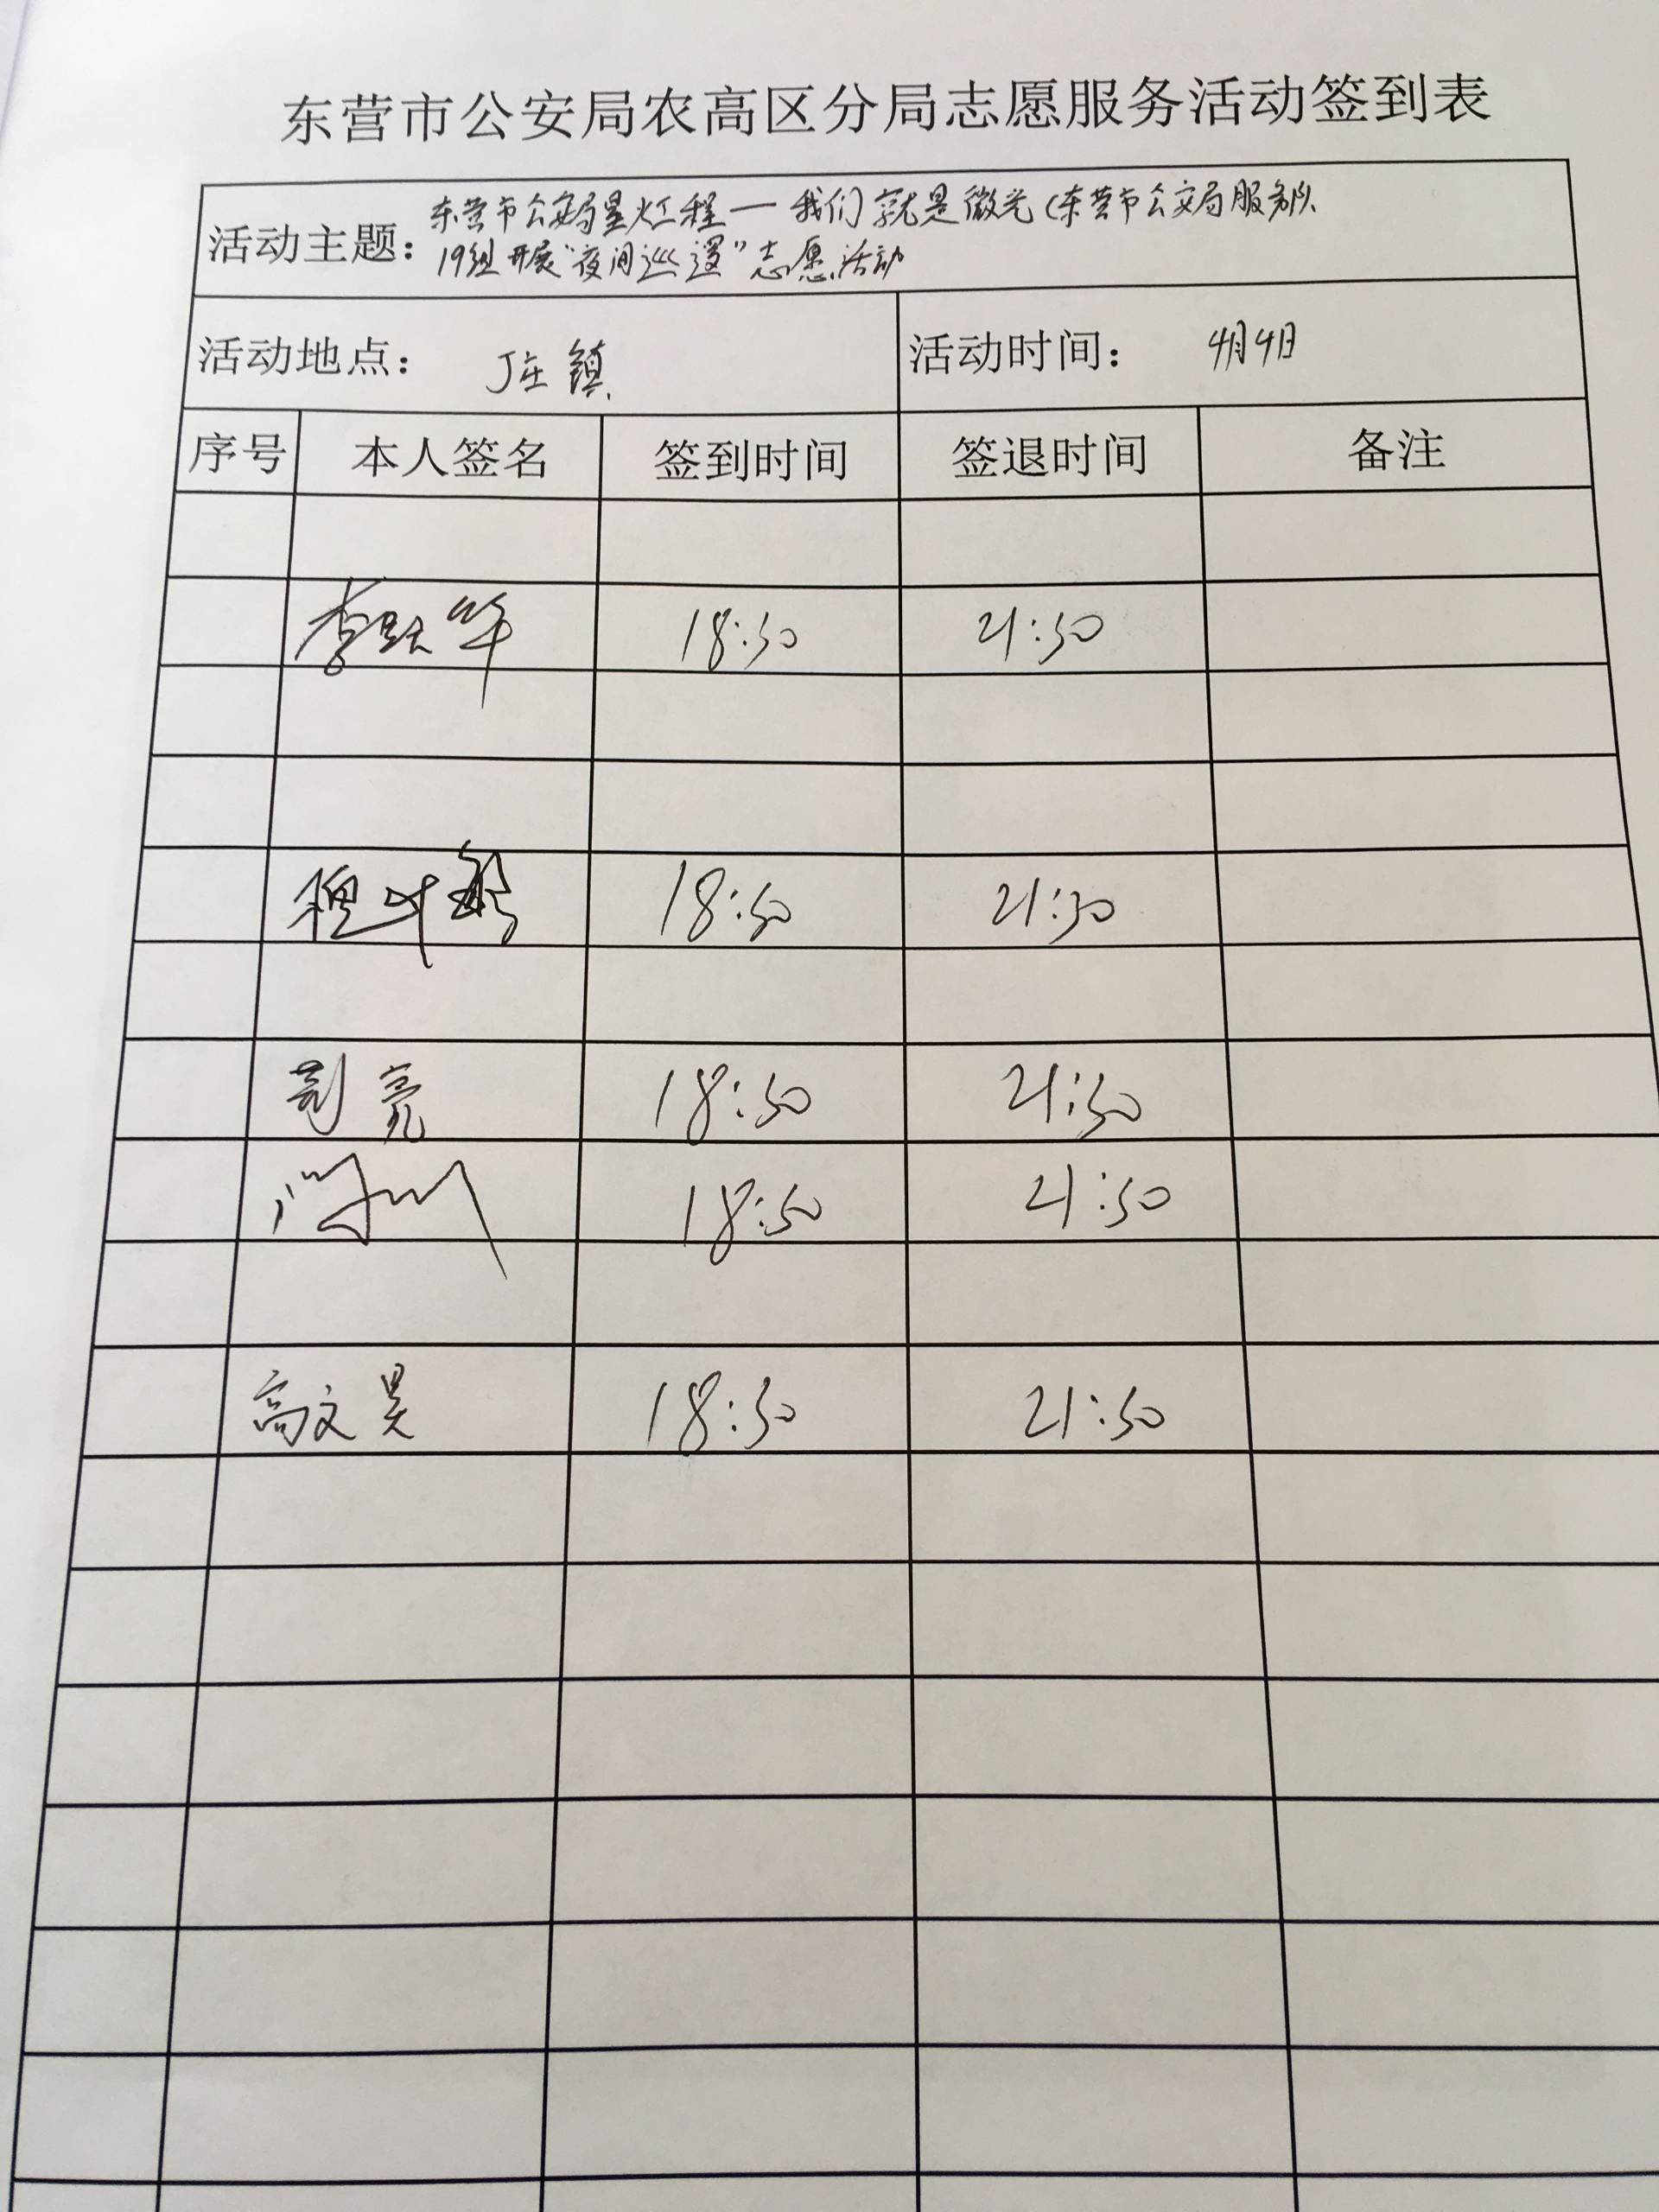 东营市公安局农高区分局志愿服务活动签到表
活动主题：东营市公安局星火工程一我们就是微光（东营市公安局服务队
19组开展“夜间巡逻”志愿活动
活动地点： 丁庄镇 活动时间： 4月4日
序号 本人签名 签到时间 签退时间 备注
李跃华 18:30 21:30
18:30 21:30
亮 18:30 21:30
18:30 21:30
高文昊 18:30 21:30